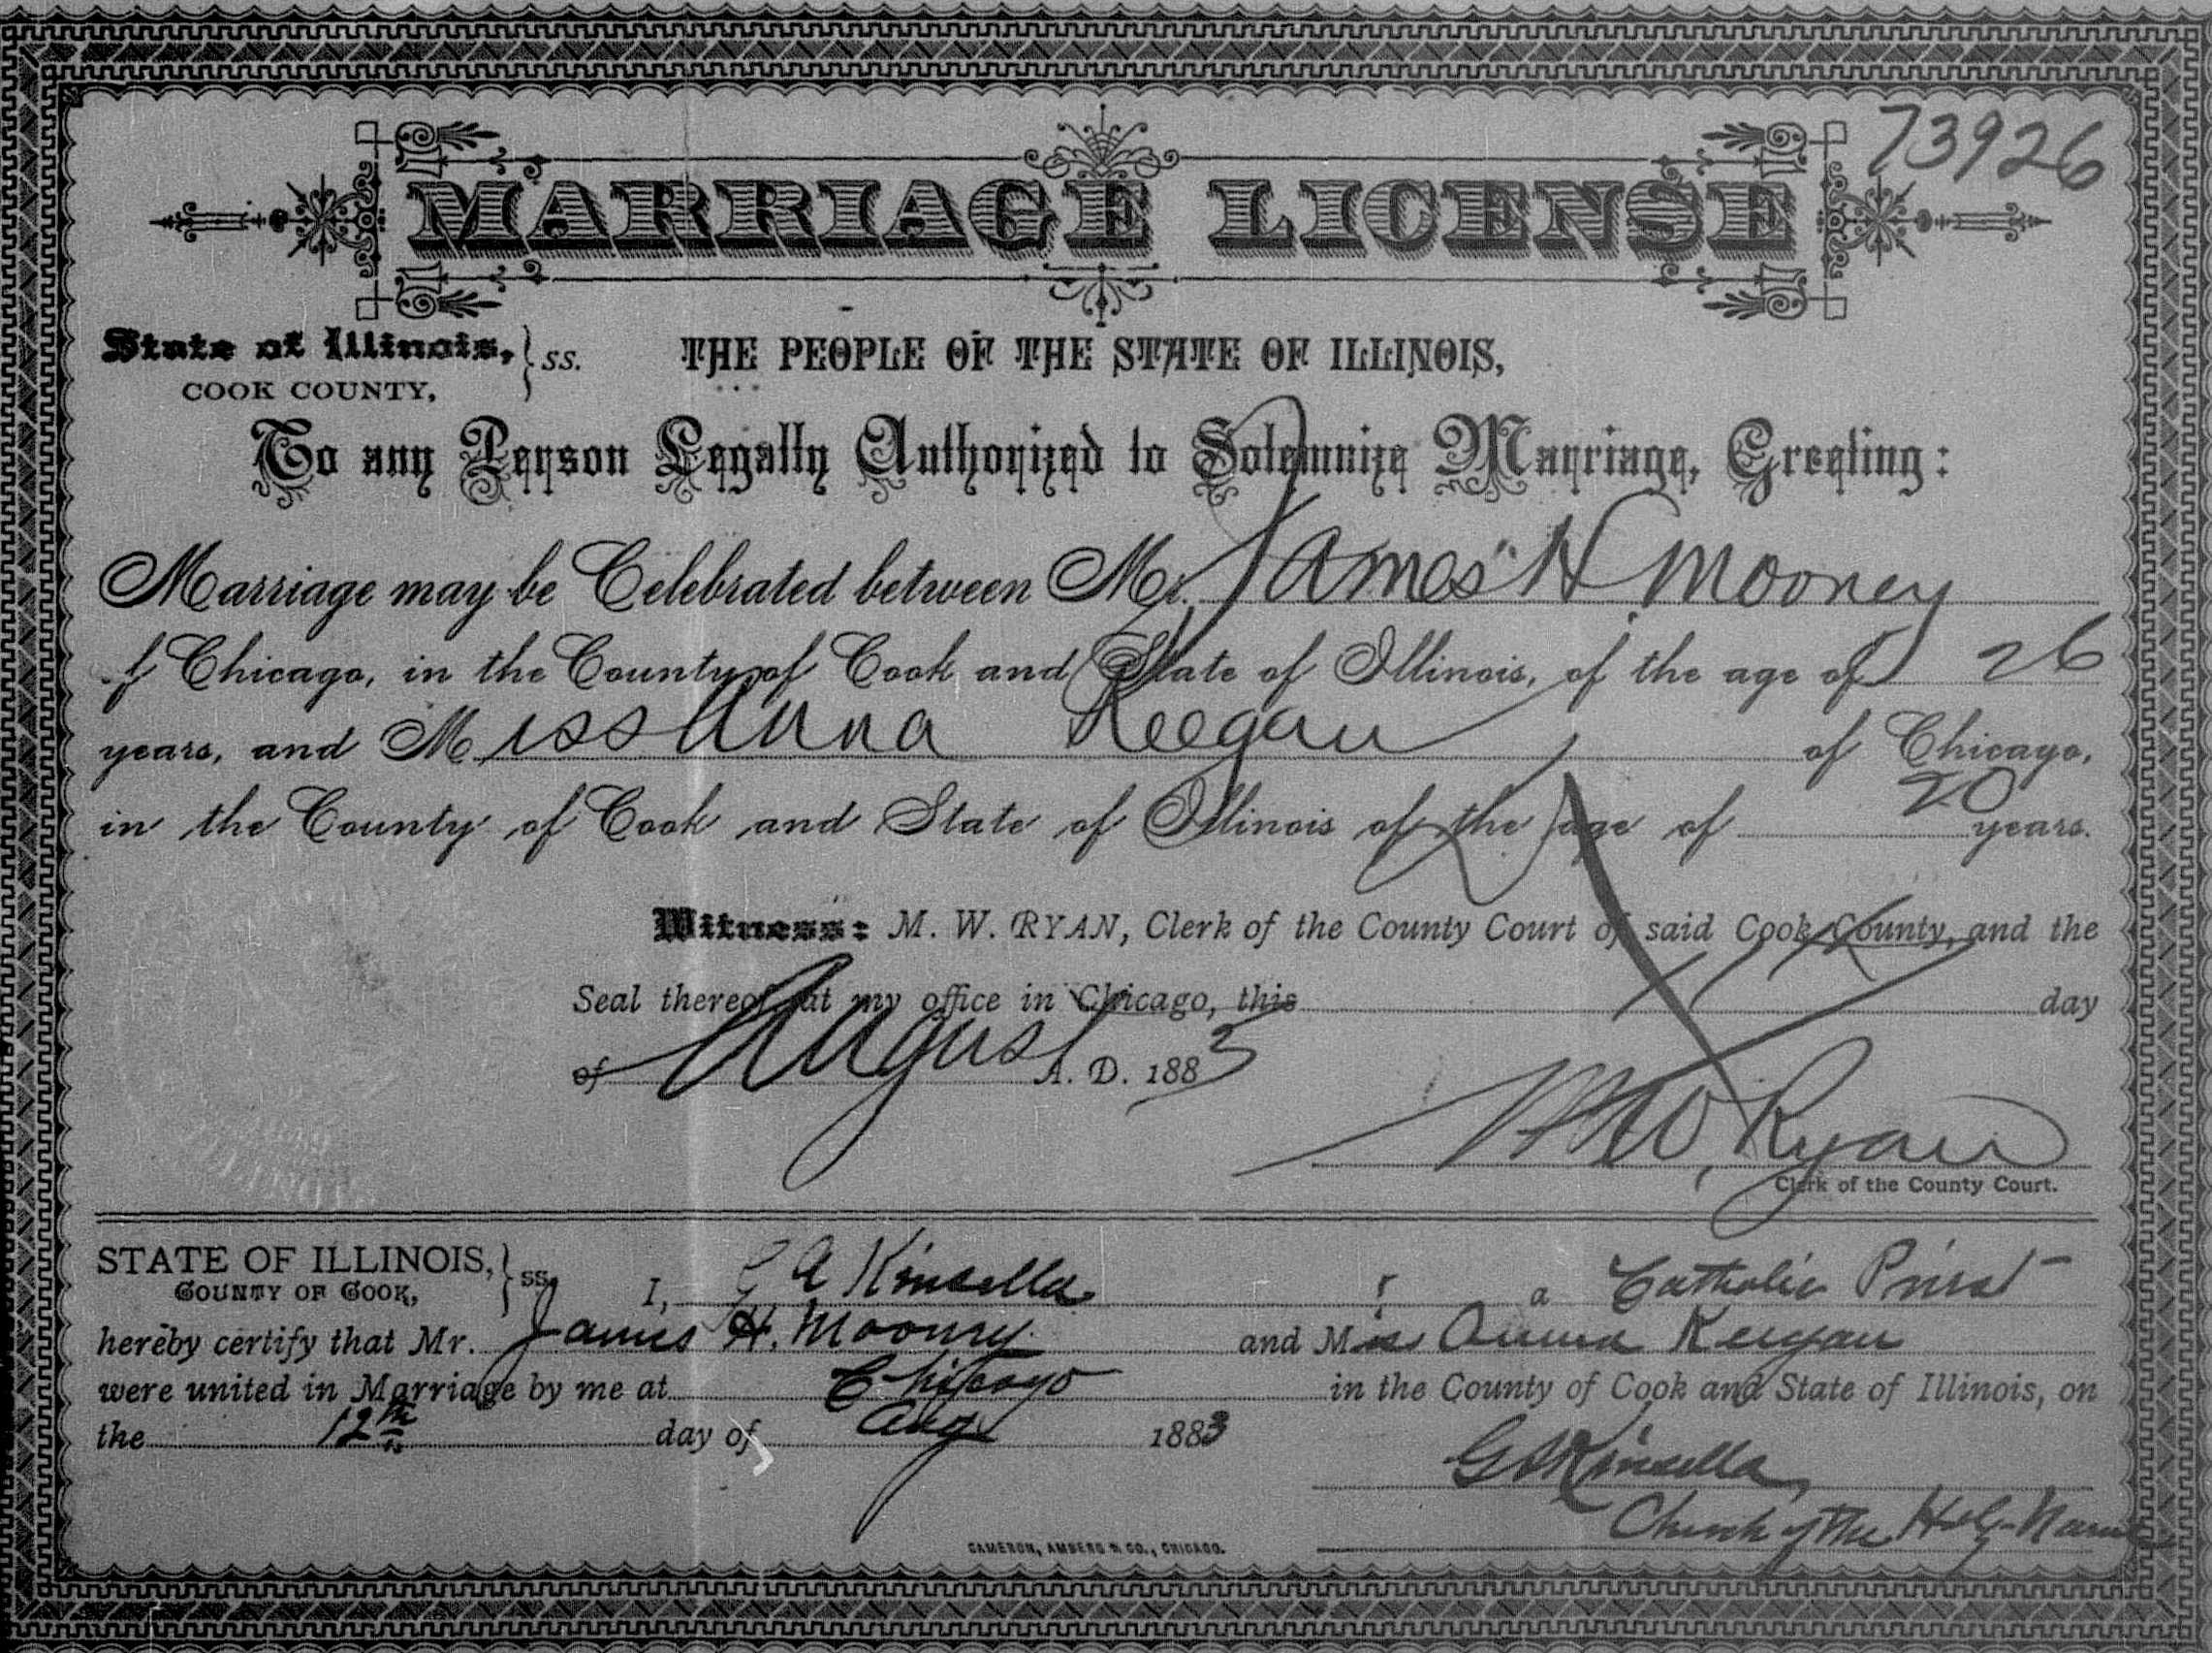 73926
MARRIAGE LICENSE
State of Illinois, } ss.
COOK COUNTY,
THE PEOPLE OF THE STATE OF ILLINOIS,
To any Person Legally Authorized to Solemnize Marriage, Greeting:
Marriage may be Celebrated between Mr. James H Mooney
of Chicago, in the County of Cook and State of Illinois, of the age of 26
years, and Miss Anna Keegan of Chicago,
in the County of Cook and State of Illinois of the age of 20 years.
Witness: M. W. RYAN, Clerk of the County Court of said Cook County, and the
Seal thereof at my office in Chicago, this day
of August A. D. 1883
M W Ryan
Clerk of the County Court.
ILLINOIS
STATE OF ILLINOIS, } ss.
COUNTY OF COOK,
I, G A Kinsella a Catholic Priest
hereby certify that Mr. James H. Mooney and Miss Anna Keegan
were united in Marriage by me at Chicago in the County of Cook and State of Illinois, on
the 12th day of Aug 1883
G A Kinsella
Church of the Holy Name
CAMERON, AMBERG & CO., CHICAGO.